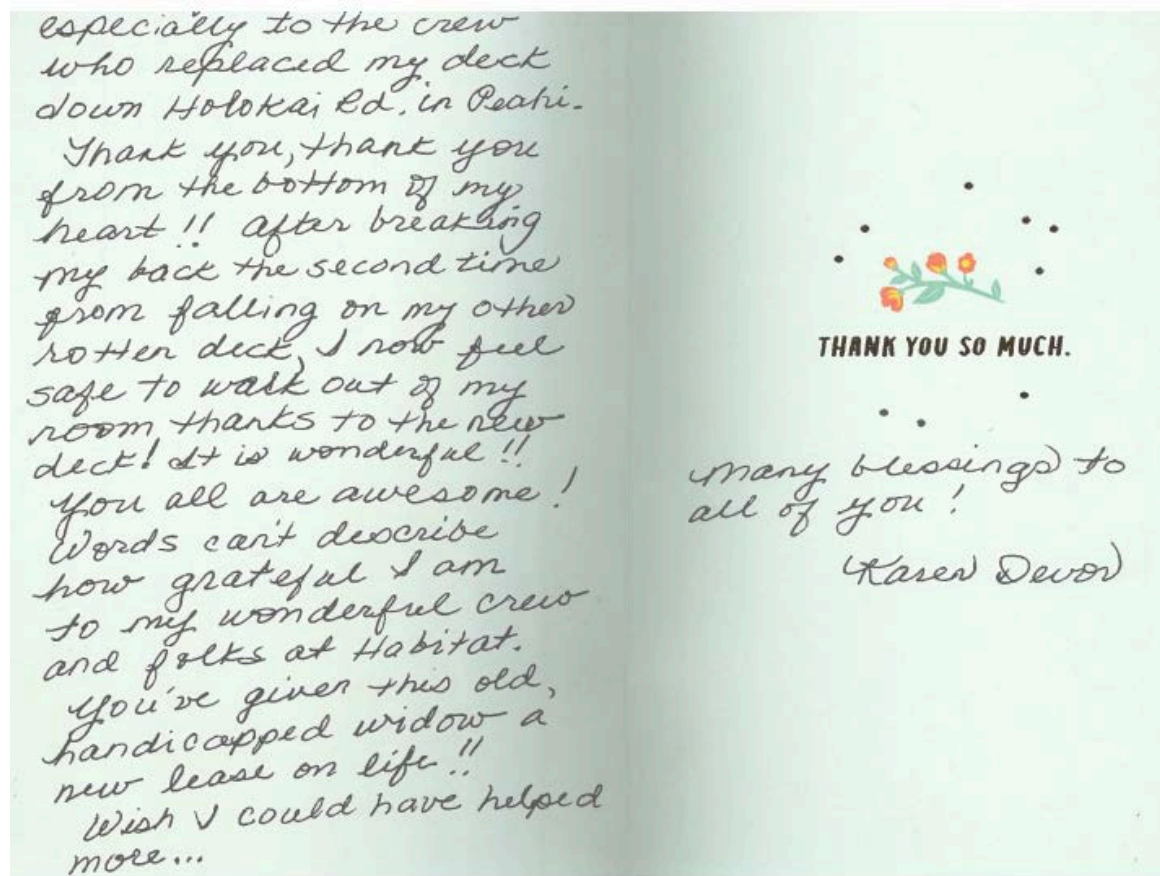 especially to the crew
who replaced my deck
down Holokai Rd. in Peahi.
Thank you, thank you
from the bottom of my
heart!! After breaking
my back the second time
from falling on my other
rotten deck, I now feel
safe to walk out of my
room thanks to the new
deck! It is wonderful!!
You all are awesome!
Words can't describe
how grateful I am
to my wonderful crew
and folks at Habitat.
You've given this old,
handicapped widow a
new lease on life!!
Wish I could have helped
more...
THANK YOU SO MUCH.
Many blessings to
all of you!
Karen Devor